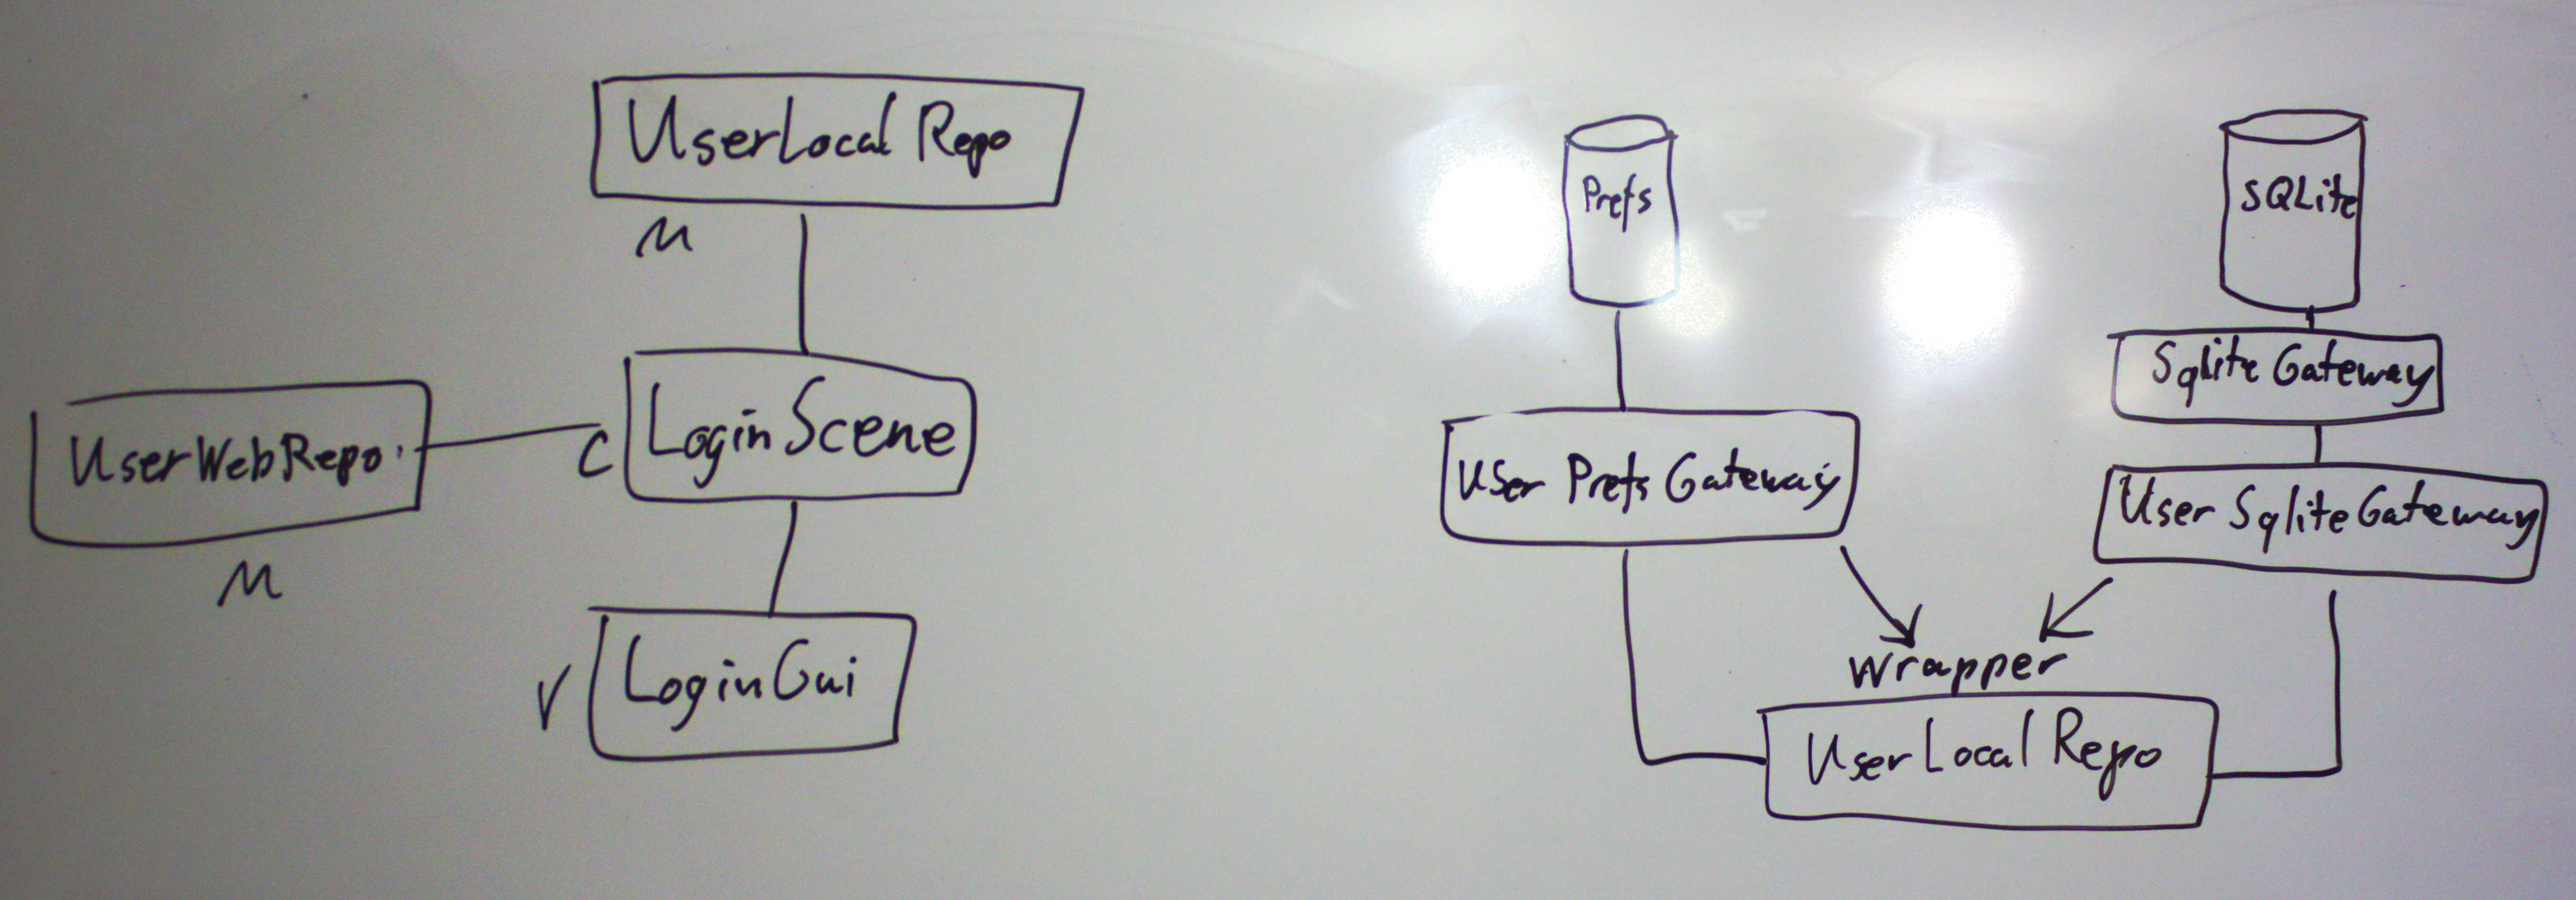 UserLocal Repo
M
UserWebRepo
M
C
LoginScene
V
LoginGui
Prefs
SQLite
Sqlite Gateway
User Prefs Gateway
User Sqlite Gateway
wrapper
UserLocal Repo